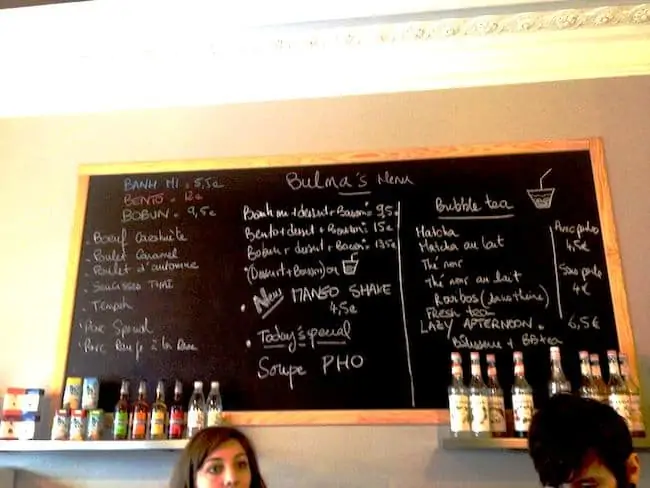 Bulma's Menu
BANH MI = 5,5€
BENTO = 12€
BOBUN = 9,5€
- Boeuf
- Poulet Caramel
- Poulet d'automne
- SAUCISSES THAÏ
- Tempeh
- Porc Special
- Porc
Banh mi + dessert + Boisson = 9,5€
Bento + dessert + Boisson = 15€
Bobun + dessert + Boisson = 13,5€
(Dessert + Boisson) ou
New MANGO SHAKE
4,5€
Today's special
Soupe PHO
Bubble tea
Matcha
Matcha au lait
Thé noir
Thé noir au lait
Rooibos (sans théine)
FRESH tea
Avec perles
4,5€
Sans perles
4€
LAZY AFTERNOON = 6,5€
Pâtisserie + BBtea